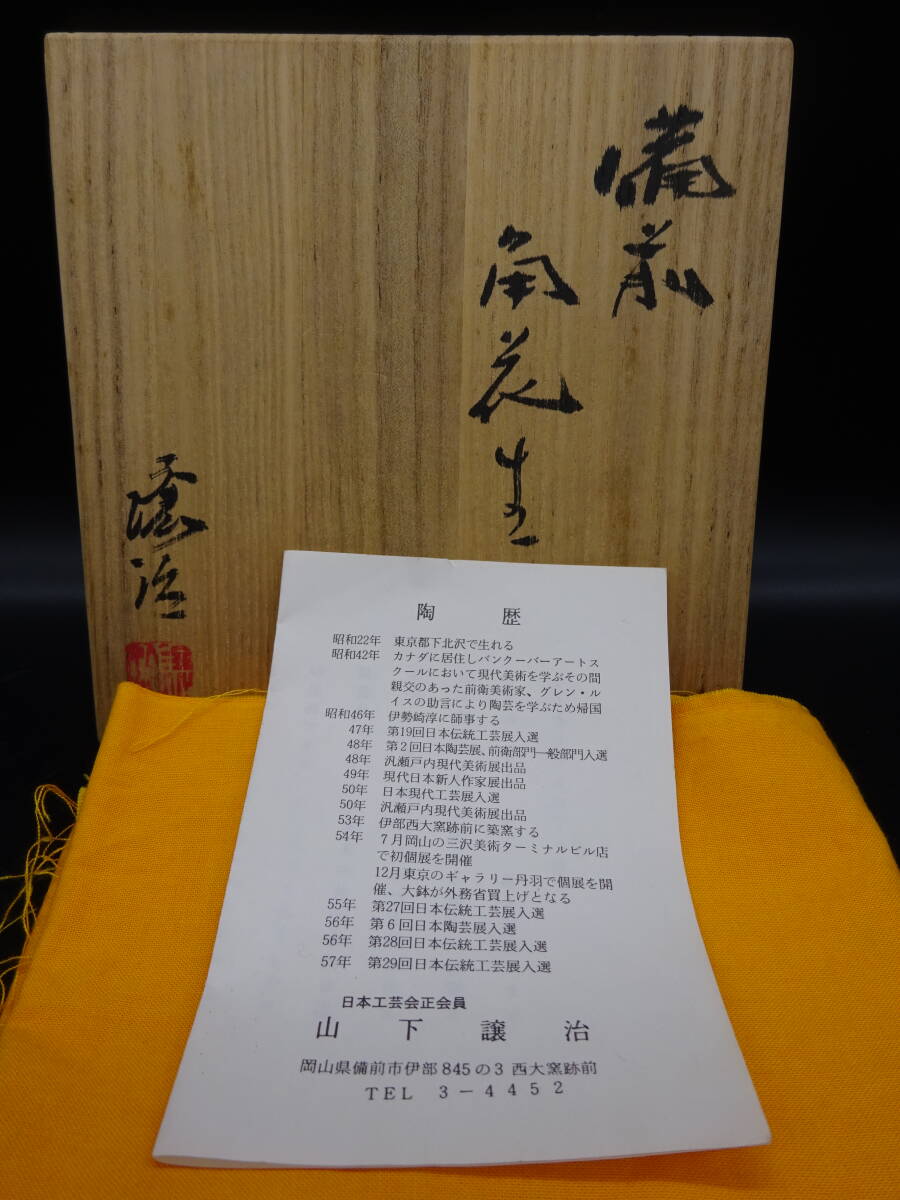 備前
角花生
譲治
陶歴
昭和22年 東京都下北沢で生れる
昭和42年 カナダに居住しバンクーバーアートス
クールにおいて現代美術を学ぶその間
親交のあった前衛美術家、グレン・ル
イスの助言により陶芸を学ぶため帰国
昭和46年 伊勢崎淳に師事する
47年 第19回日本伝統工芸展入選
48年 第2回日本陶芸展、前衛部門一般部門入選
48年 汎瀬戸内現代美術展出品
49年 現代日本新人作家展出品
50年 日本現代工芸展入選
50年 汎瀬戸内現代美術展出品
53年 伊部西大窯跡前に築窯する
54年 7月岡山の三沢美術ターミナルビル店
で初個展を開催
12月東京のギャラリー丹羽で個展を開
催、大鉢が外務省買上げとなる
55年 第27回日本伝統工芸展入選
56年 第6回日本陶芸展入選
56年 第28回日本伝統工芸展入選
57年 第29回日本伝統工芸展入選
日本工芸会正会員
山下譲治
岡山県備前市伊部845の3 西大窯跡前
TEL 3-4452